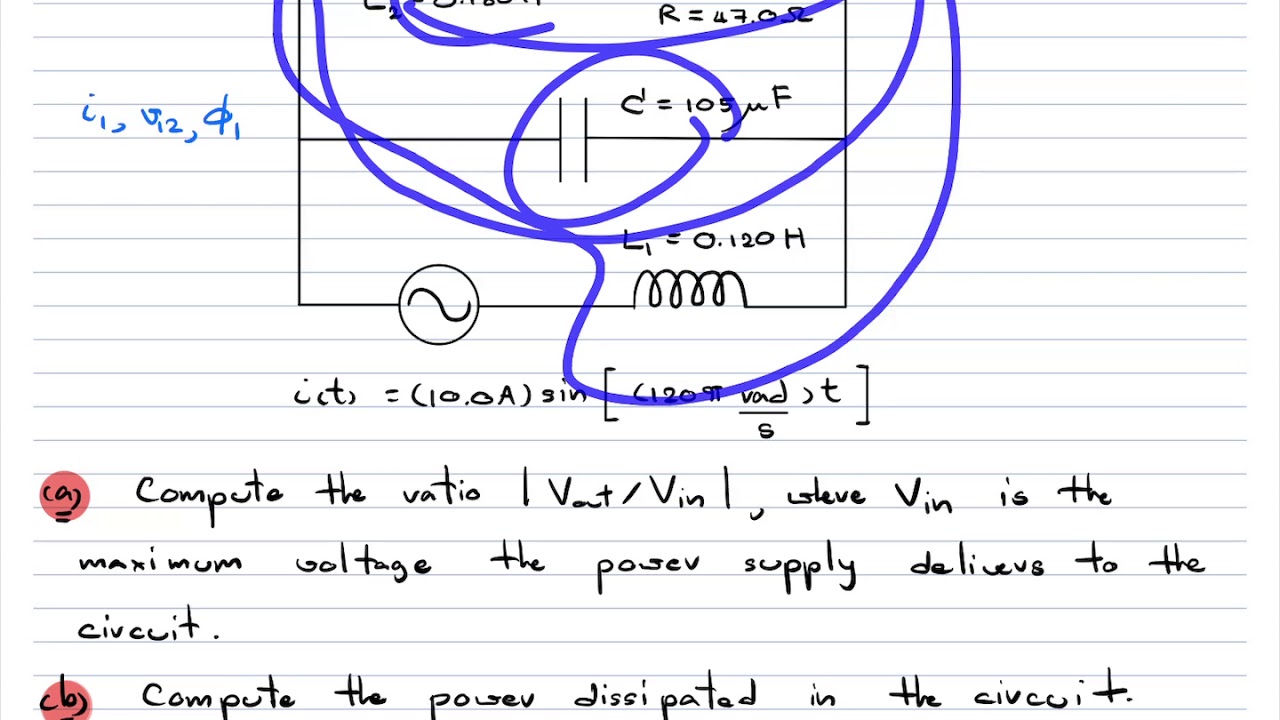 R = 47.0Ω
C = 105 μF
i₁, v₁₂, ϕ₁
L₁ = 0.120 H
i(t) = (10.0A) sin [ (120π rad/s) t ]
(a) Compute the ratio | Vout / Vin |, where Vin is the
maximum voltage the power supply delivers to the
circuit.
(b) Compute the power dissipated in the circuit.